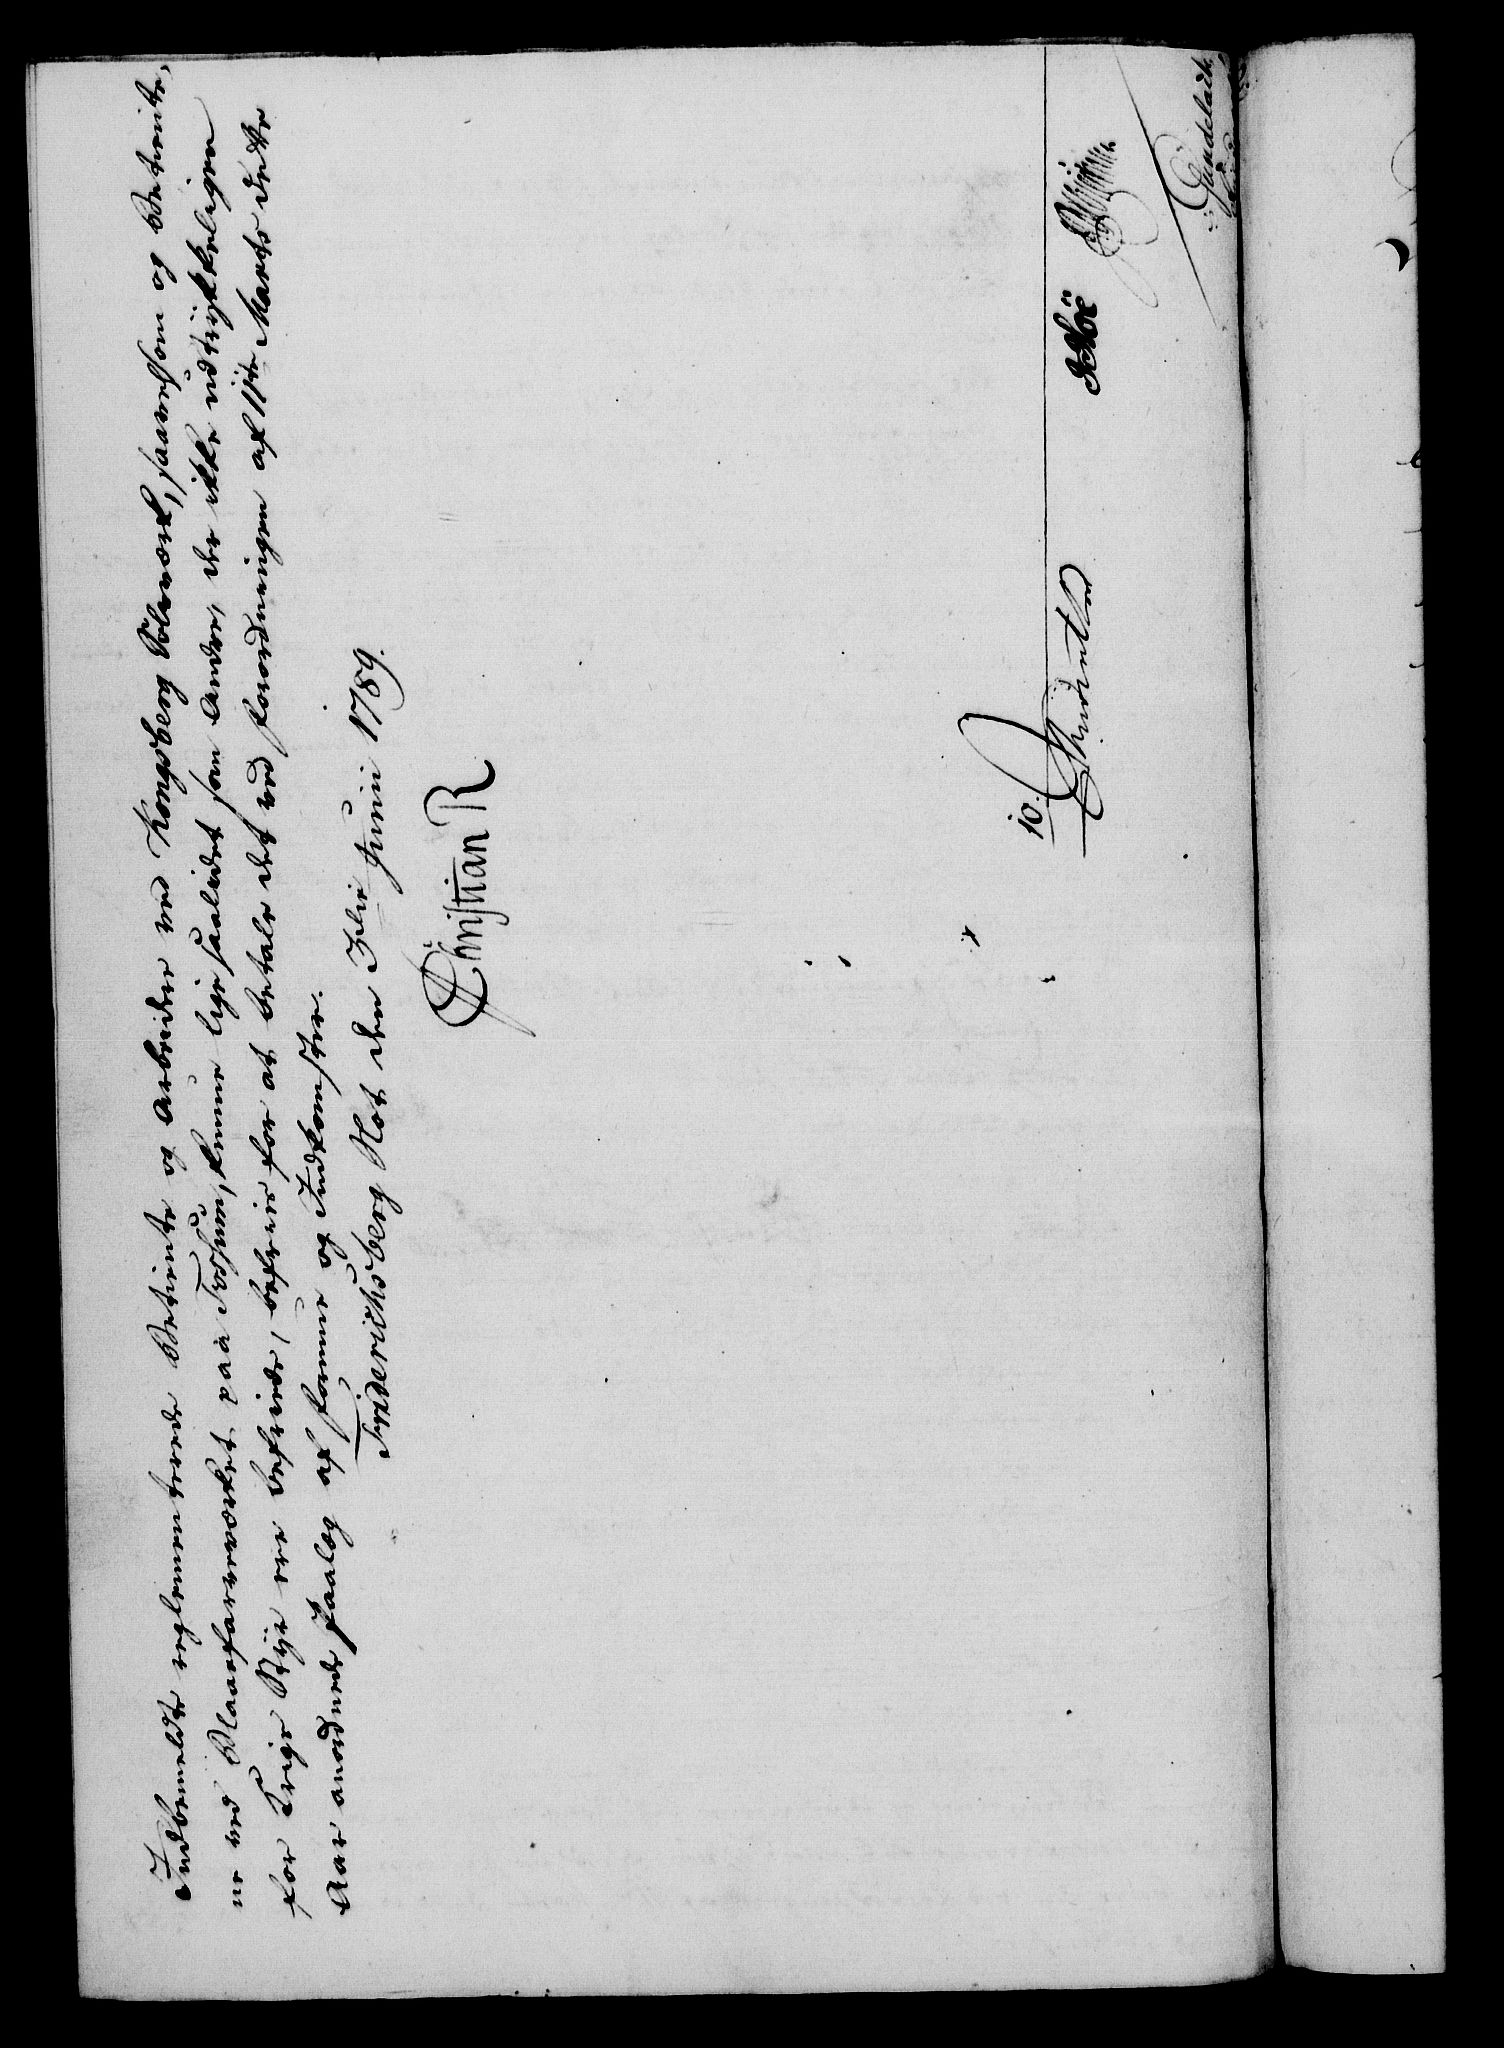 Indbemeldte reglementerede Betiente og Arbeidere ved Kongsberg Sølvværk, saavelsom og Betiente,
ne ved Blaafarveværket paa Fossum, kunne lige saalidet som Andre, der ikke udtrÿkkeligen
for Krigs Stÿr ere befriede, befries for at betale det ved Forordningen af 11te Marts dette
Aar anordnede Paalæg af Formue og Indkomster.
Friderichsberg Slot den Juni 1789.
Christian R
10.
Gündelach.